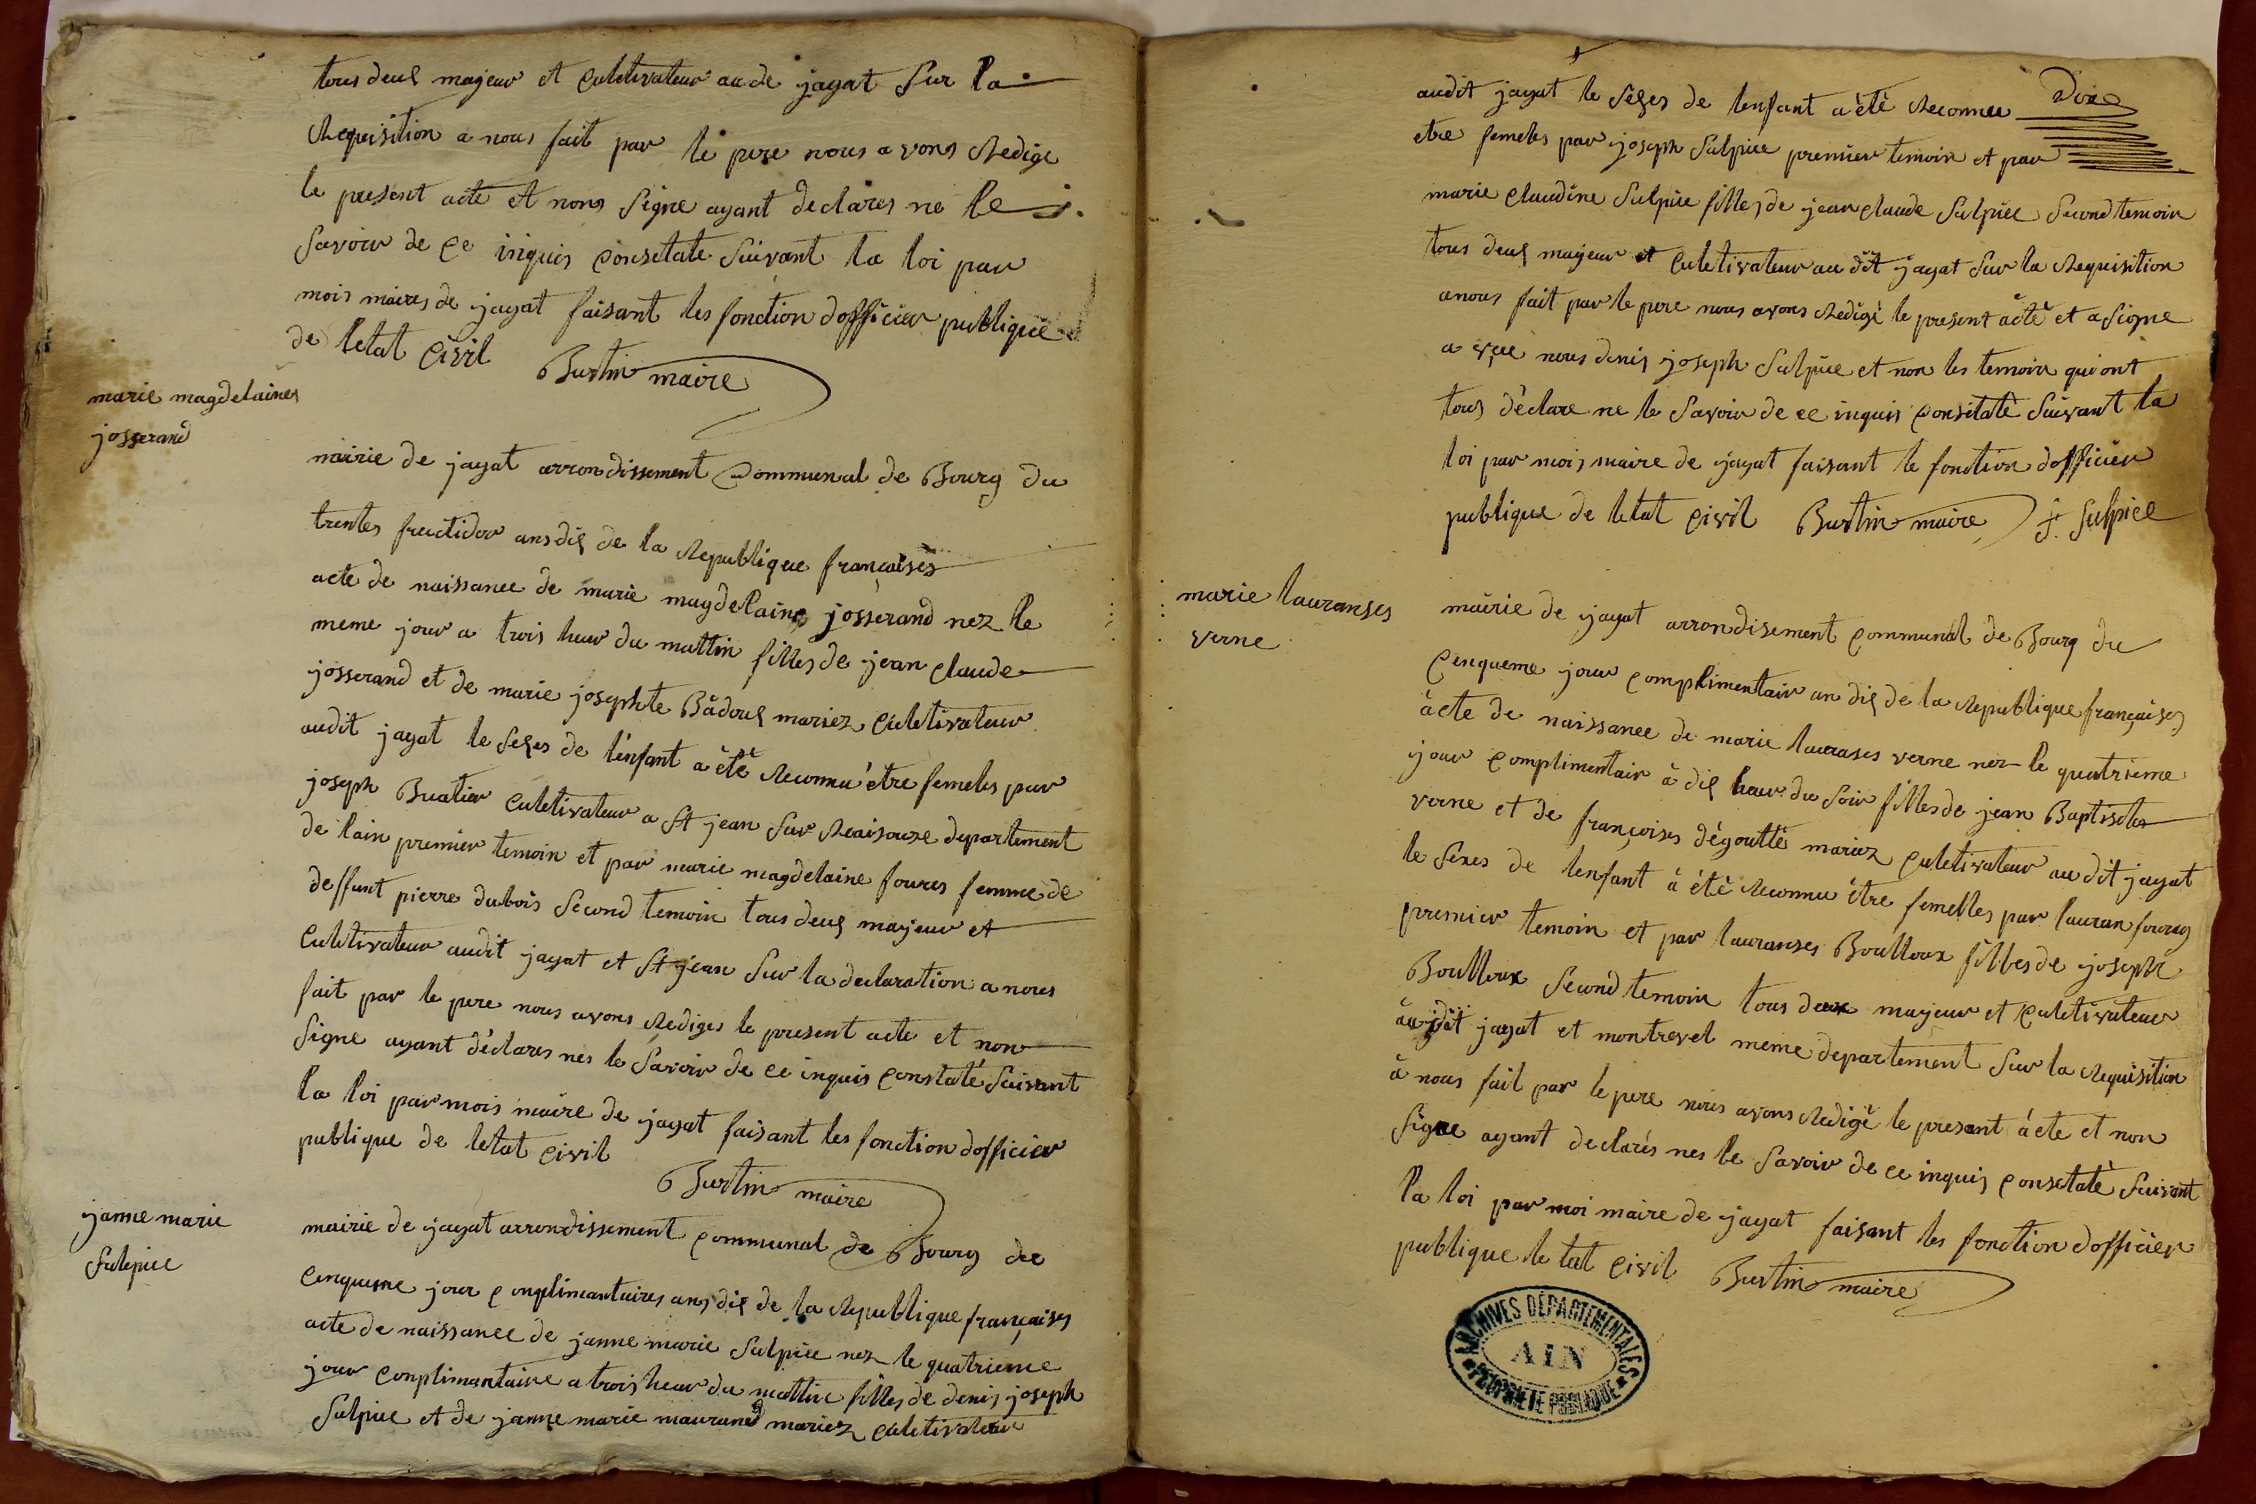 tous deuξ majeur et Culetivateur au de jayat sur la
Requisition a nous fait par le pere nous avons Redige
le present acte et nons signe ayant declares ne le
savoir de Ce inquis Consetate suivant la loi par
mois maires de jayat faisant les fonction dofficier publique
de letat Civil Burtin maire
marie magdelaines
josserand
mairie de jayat arrondissement Communal de Bourg du
trentes fructidor ans diξ de la Republique françaises
acte de naissance de marie magdelaine josserand nez le
meme jour a trois heur du mattin filles de jean Claude
josserand et de marie josephte Badouξ mariez Culetivateur
audit jayat le seξes de lenfant a été Reconnu être femeles par
joseph Buatier Culetivateur a St jean sur Reaisouze departement
de lain premier temoin et par marie magdelaine foures femme de
deffunt pierre dubois second temoin tous deuξ majeur et
Culetivateur audit jayat et St jean sur la declaration a nous
fait par le pere nous avons Rediges le present acte et non
signe ayant déclares nes le savoir de Ce inquis Constaté suivant
la loi par mois maire de jayat faisant les fonction dofficier
publique de letat Civil
Burtin maire
janne marie
sulepice
mairie de jayat arrondissement Communal de Bourg du
Cinqueme jour Complimantaires ans diξ de la Republique françaises
acte de naissance de janne marie sulpice nez le quatrieme
jour Complimantaire a trois heur du mattin filles de denis joseph
sulpice et de janne marie maurand mariez Culetivateur
audit jayat le séξes de lenfant a été Reconnu
etre femeles par joseph sulpice premier temoin et par
marie Claudine sulpice filles de jean Claude sulpice second temoin
tous deuξ majeur et Culetivateur au dit jayat sur la Requisition
anous fait par le pere nous avons Redigé le present acte et a signe
avec nous denis joseph sulpice et non les temoin qui ont
tous déclare ne le savoir de Ce inquis Consetaté suivant la
loi par mois maire de jayat faisant le fonction dofficier
publique de letat Civil Burtin maire J. sulpice
marie lauranses
verne
mairie de jayat arrondisement Communal de Bourg du
Cenqueme jour Complimentair an diξ de la Republique françaises
acte de naissance de marie laurases verne nez le quatrieme
jour Complimentair à diξ heur du soir filles de jean Baptistes
verne et de françoises dégoutte mariez Culetivateur au dit jayat
le sexes de lenfant à été Reconnu être femelles par lauran foures
premier temoin et par lauranses Boulloux filles de joseph
Boulloux second temoin tous deux majeur et Culetivateur
audit jayat et montrevel meme departement sur la Requisition
à nous fait par le pere nous avons Redigé le presant acte et non
signe ayant declarés nes le savoir de ce inquis Consetaté suivant
la loi par moi maire de jayat faisant les fonction dofficier
publique le tat Civil Burtin maire
ARCHIVES DÉPARTEMENTALES
AIN
PROPRIÉTÉ PUBLIQUE